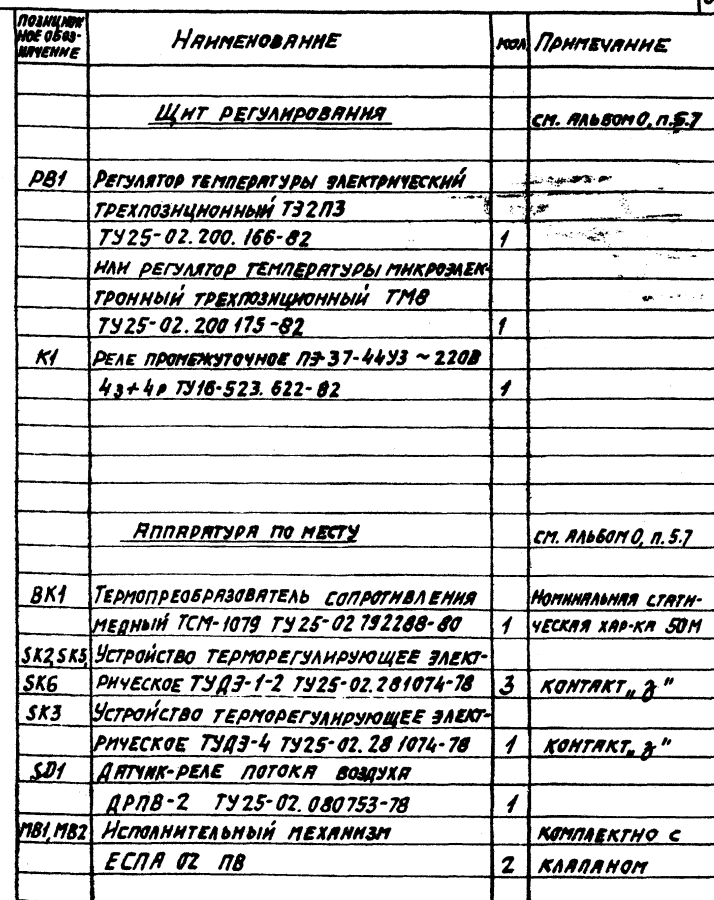 ПОЗИЦИОН
НОЕ ОБОЗ-
НАЧЕНИЕ
НАИМЕНОВАНИЕ
КОЛ
ПРИМЕЧАНИЕ
ЩИТ РЕГУЛИРОВАНИЯ
СМ. АЛЬБОМ 0, П.5.7
РВ1 РЕГУЛЯТОР ТЕМПЕРАТУРЫ ЭЛЕКТРИЧЕСКИЙ
ТРЕХПОЗИЦИОННЫЙ ТЭ2ПЗ
ТУ25-02.200.166-82 1
ИЛИ РЕГУЛЯТОР ТЕМПЕРАТУРЫ МИКРОЭЛЕК-
ТРОННЫЙ ТРЕХПОЗИЦИОННЫЙ ТМ8
ТУ25-02.200 175-82 1
К1 РЕЛЕ ПРОМЕЖУТОЧНОЕ ПЭ-37-44У3 ~ 220В
4з+4р ТУ16-523.622-82 1
АППАРАТУРА ПО МЕСТУ СМ. АЛЬБОМ 0, П.5.7
ВК1 ТЕРМОПРЕОБРАЗОВАТЕЛЬ СОПРОТИВЛЕНИЯ НОМИНАЛЬНАЯ СТАТИ-
МЕДНЫЙ ТСМ-1079 ТУ25-02 792288-80 1 ЧЕСКАЯ ХАР-КА 50М
SK2,SK5, УСТРОЙСТВО ТЕРМОРЕГУЛИРУЮЩЕЕ ЭЛЕКТ-
SK6 РИЧЕСКОЕ ТУДЭ-1-2 ТУ25-02.281074-78 3 КОНТАКТ „ з "
SK3 УСТРОЙСТВО ТЕРМОРЕГУЛИРУЮЩЕЕ ЭЛЕКТ-
РИЧЕСКОЕ ТУДЭ-4 ТУ25-02.281074-78 1 КОНТАКТ „ з "
SD1 ДАТЧИК-РЕЛЕ ПОТОКА ВОЗДУХА
ДРПВ-2 ТУ25-02.080753-78 1
МВ1,МВ2 ИСПОЛНИТЕЛЬНЫЙ МЕХАНИЗМ КОМПЛЕКТНО С
ЕСПА 02 ПВ 2 КЛАПАНОМ